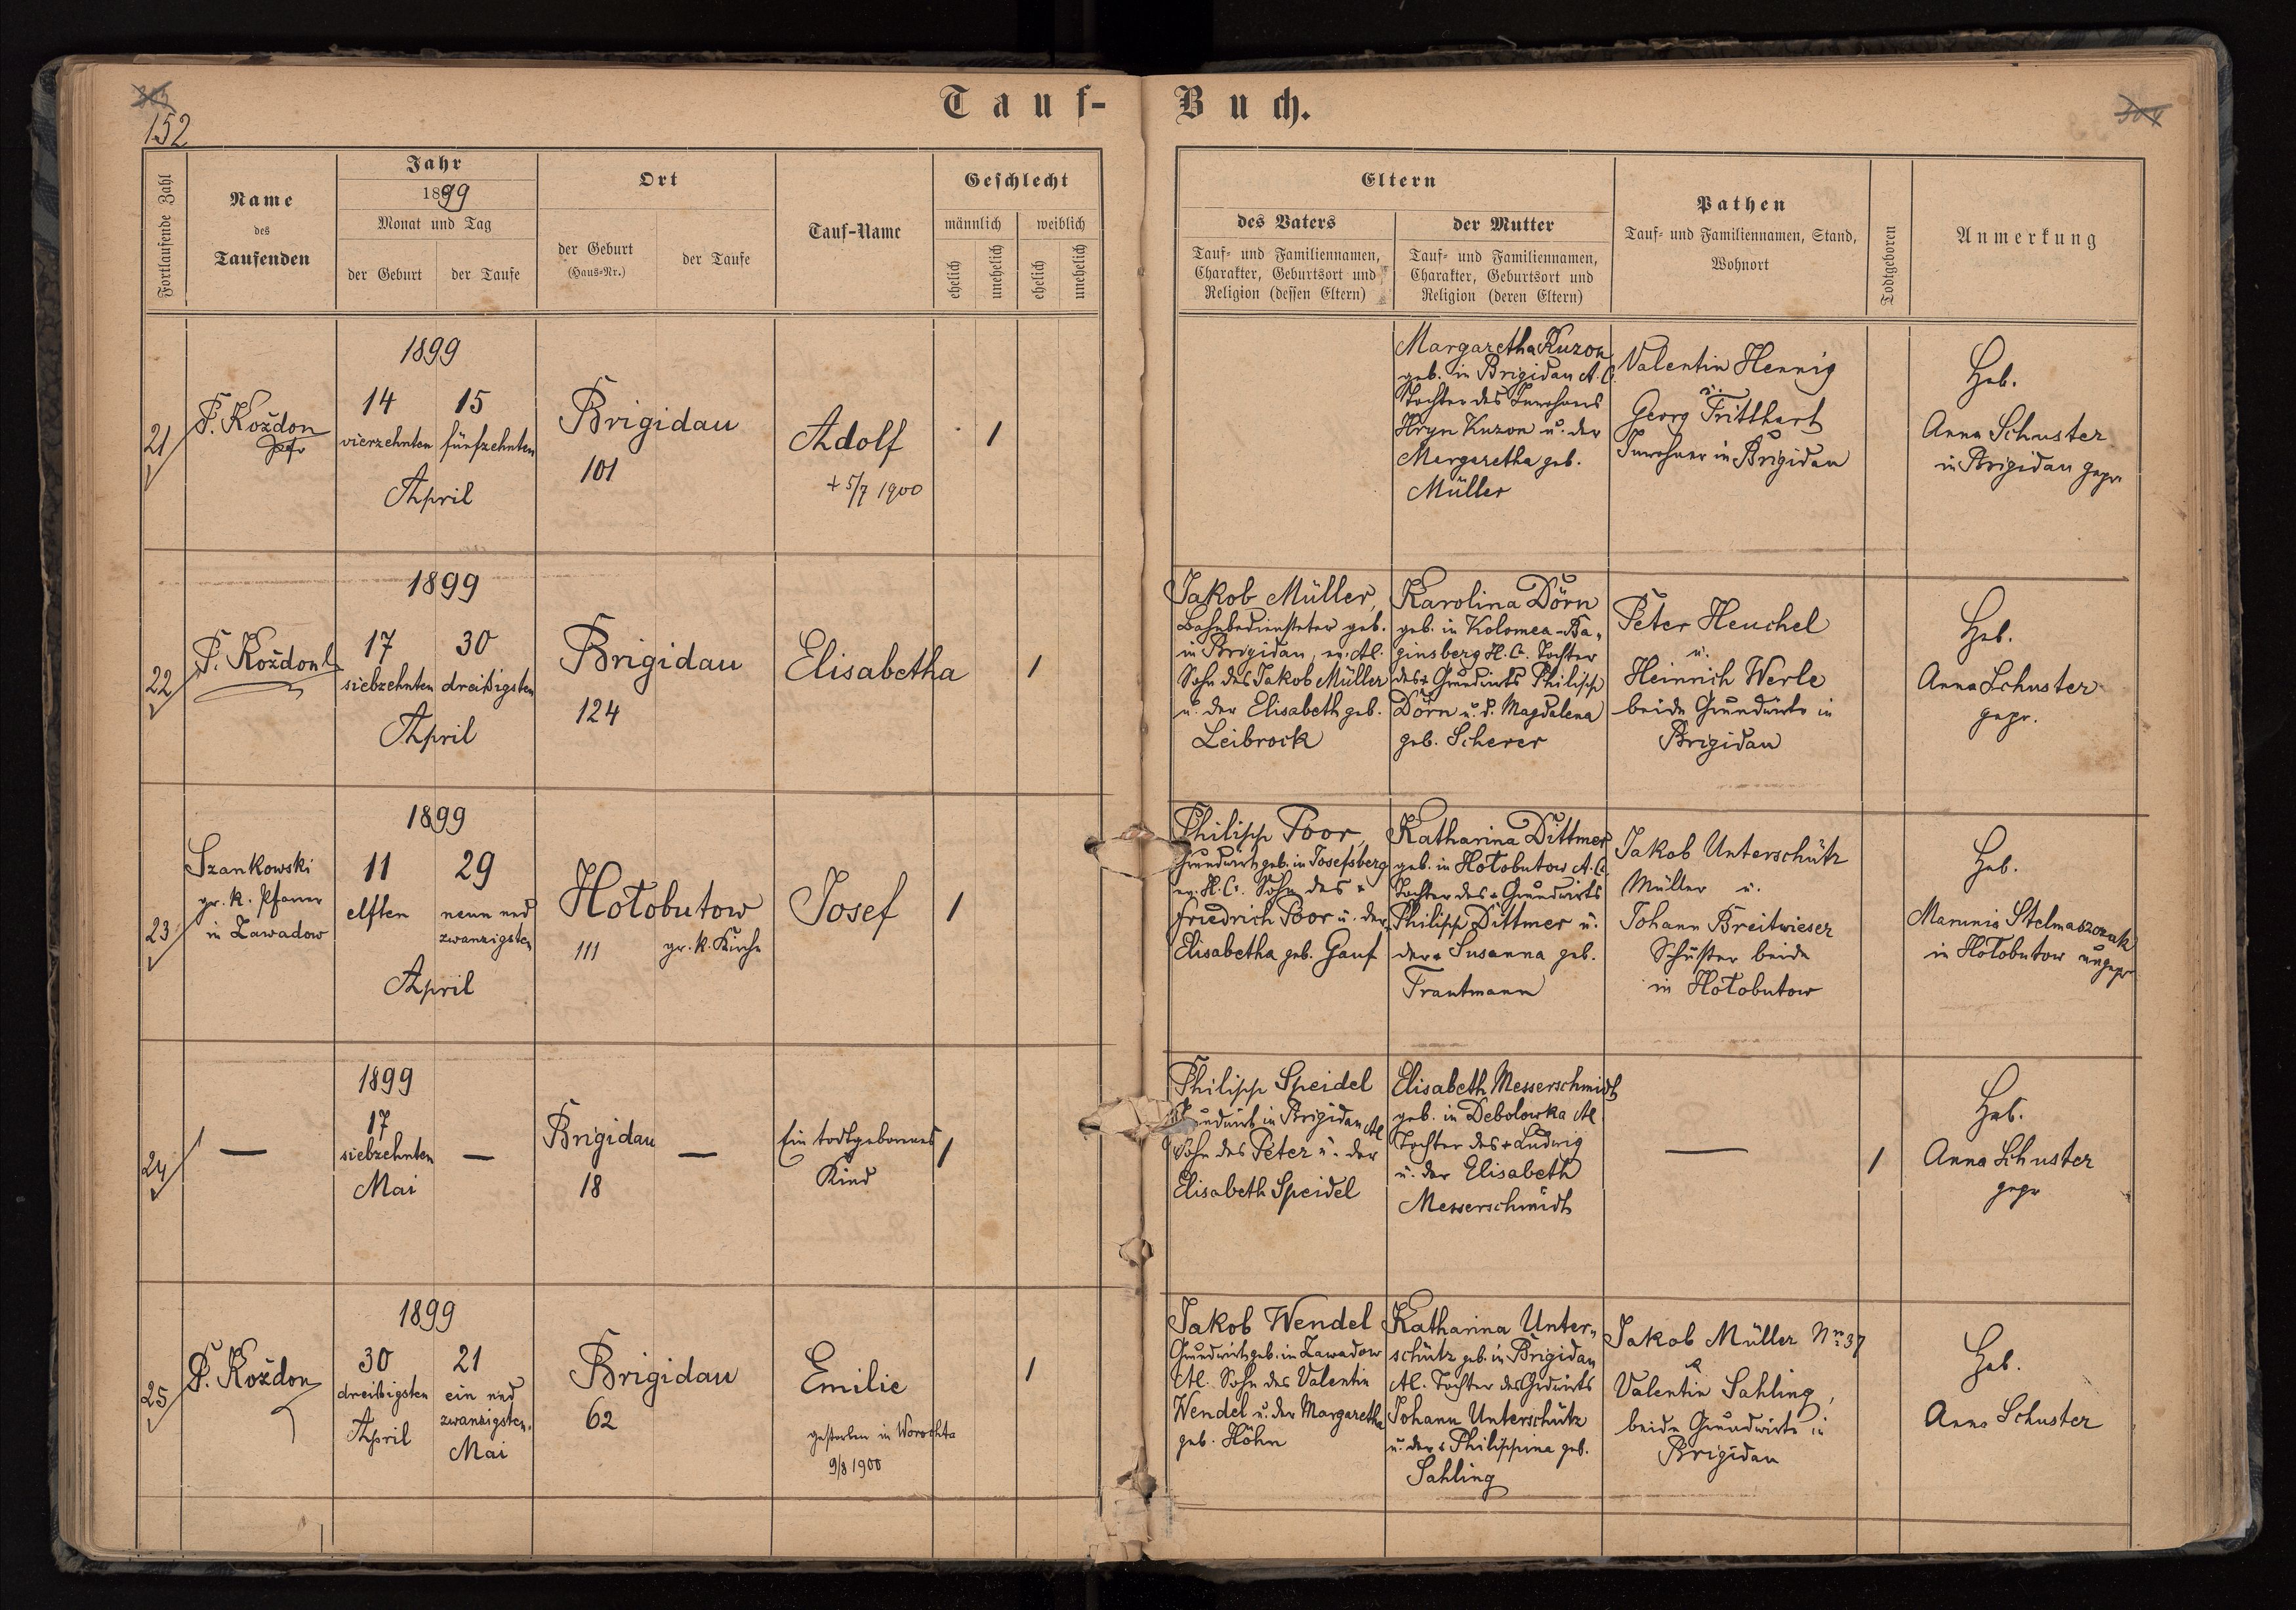 152
Tauf-
Buch.
Fortlaufende Zahl
Name
des
Taufenden
Jahr
1899
Monat und Tag
der Geburt
der Taufe
Ort
der Geburt
(Haus-Nr.)
der Taufe
Tauf-Name
Geschlecht
männlich
weiblich
ehelich
unehelich
ehelich
unehelich
Eltern
des Vaters
Tauf- und Familiennamen,
Charakter, Geburtsort und
Religion (dessen Eltern)
der Mutter
Tauf- und Familiennamen,
Charakter, Geburtsort und
Religion (deren Eltern)
Pathen
Tauf- und Familiennamen, Stand,
Wohnort
Todtgeboren
Anmerkung
21
P. Koždon
1899
14
vierzehnten
15
fünfzehnten
April
Brigidau
101
Adolf
+ 5/7 1900
1
Margaretha Kuzon
geb. in Brigidau A. C.
Tochter des Inwohners
Hryn Kuzon u. der
Margaretha geb.
Müller
Valentin Hennig
u.
Georg Tritthart
Inwohner in Brigidau
Heb.
Anna Schuster
in Brigidau gepr.
22
P. Koždon
1899
17
siebzehnten
30
dreißigsten
April
Brigidau
124
Elisabetha
1
Jakob Müller,
Bahnbediensteter geb.
in Brigidau, ev. A.C.
Sohn des Jakob Müller
u. der Elisabeth geb.
Leibrock
Karolina Dörn
geb. in Kolomea-Ba-
ginsberg H. C. Tochter
des + Grundwirts Philipp
Dörn u. d. Magdalena
geb. Scherer
Peter Heuchel
u.
Heinrich Werle
beide Grundwirte in
Brigidau
Heb.
Anna Schuster
gepr.
23
Szankowski
gr. k. Pfarrer
in Zawadow
1899
11
elften
29
neun und
zwanzigsten
April
Hołobutow
111
gr. k. Kirche
Josef
1
Philipp Poor,
Grundwirt geb. in Josefsberg
ev. H. C. Sohn des +
Friedrich Poor u. der
Elisabetha geb. Gauf
Katharina Dittmer
geb. in Hołobutow A. C.
Tochter des + Grundwirts
Philipp Dittmer u.
der + Susanna geb.
Trautmann
Jakob Unterschütz
Müller u.
Johann Breitwieser
Schuster beide
in Hołobutow
Heb.
Marunia Stelmaszczuk
in Hołobutow ungepr.
24
—
1899
17
siebzehnten
Mai
—
Brigidau
18
—
Ein todtgebornes
Kind
1
Philipp Speidel
Grundwirt in Brigidau AC
Sohn des Peter u. der
Elisabeth Speidel
Elisabeth Messerschmidt
geb. in Debolowka AC.
Tochter des + Ludwig
u. der Elisabeth
Messerschmidt
—
1
Heb.
Anna Schuster
gepr
25
P. Koždon
1899
30
dreißigsten
April
21
ein und
zwanzigsten
Mai
Brigidau
62
Emilie
gestorben in Worochta
9/8 1900
1
Jakob Wendel
Grundwirt geb. in Zawadow
AC. Sohn des Valentin
Wendel u. der Margaretha
geb. Höhn
Katharina Unter-
schütz geb. in Brigidau
AC. Tochter des Grdwirts
Johann Unterschütz
u. der + Philippina geb.
Sahling
Jakob Müller Nro 37
Valentin Sahling,
beide Grundwirte in
Brigidau
Heb.
Anna Schuster